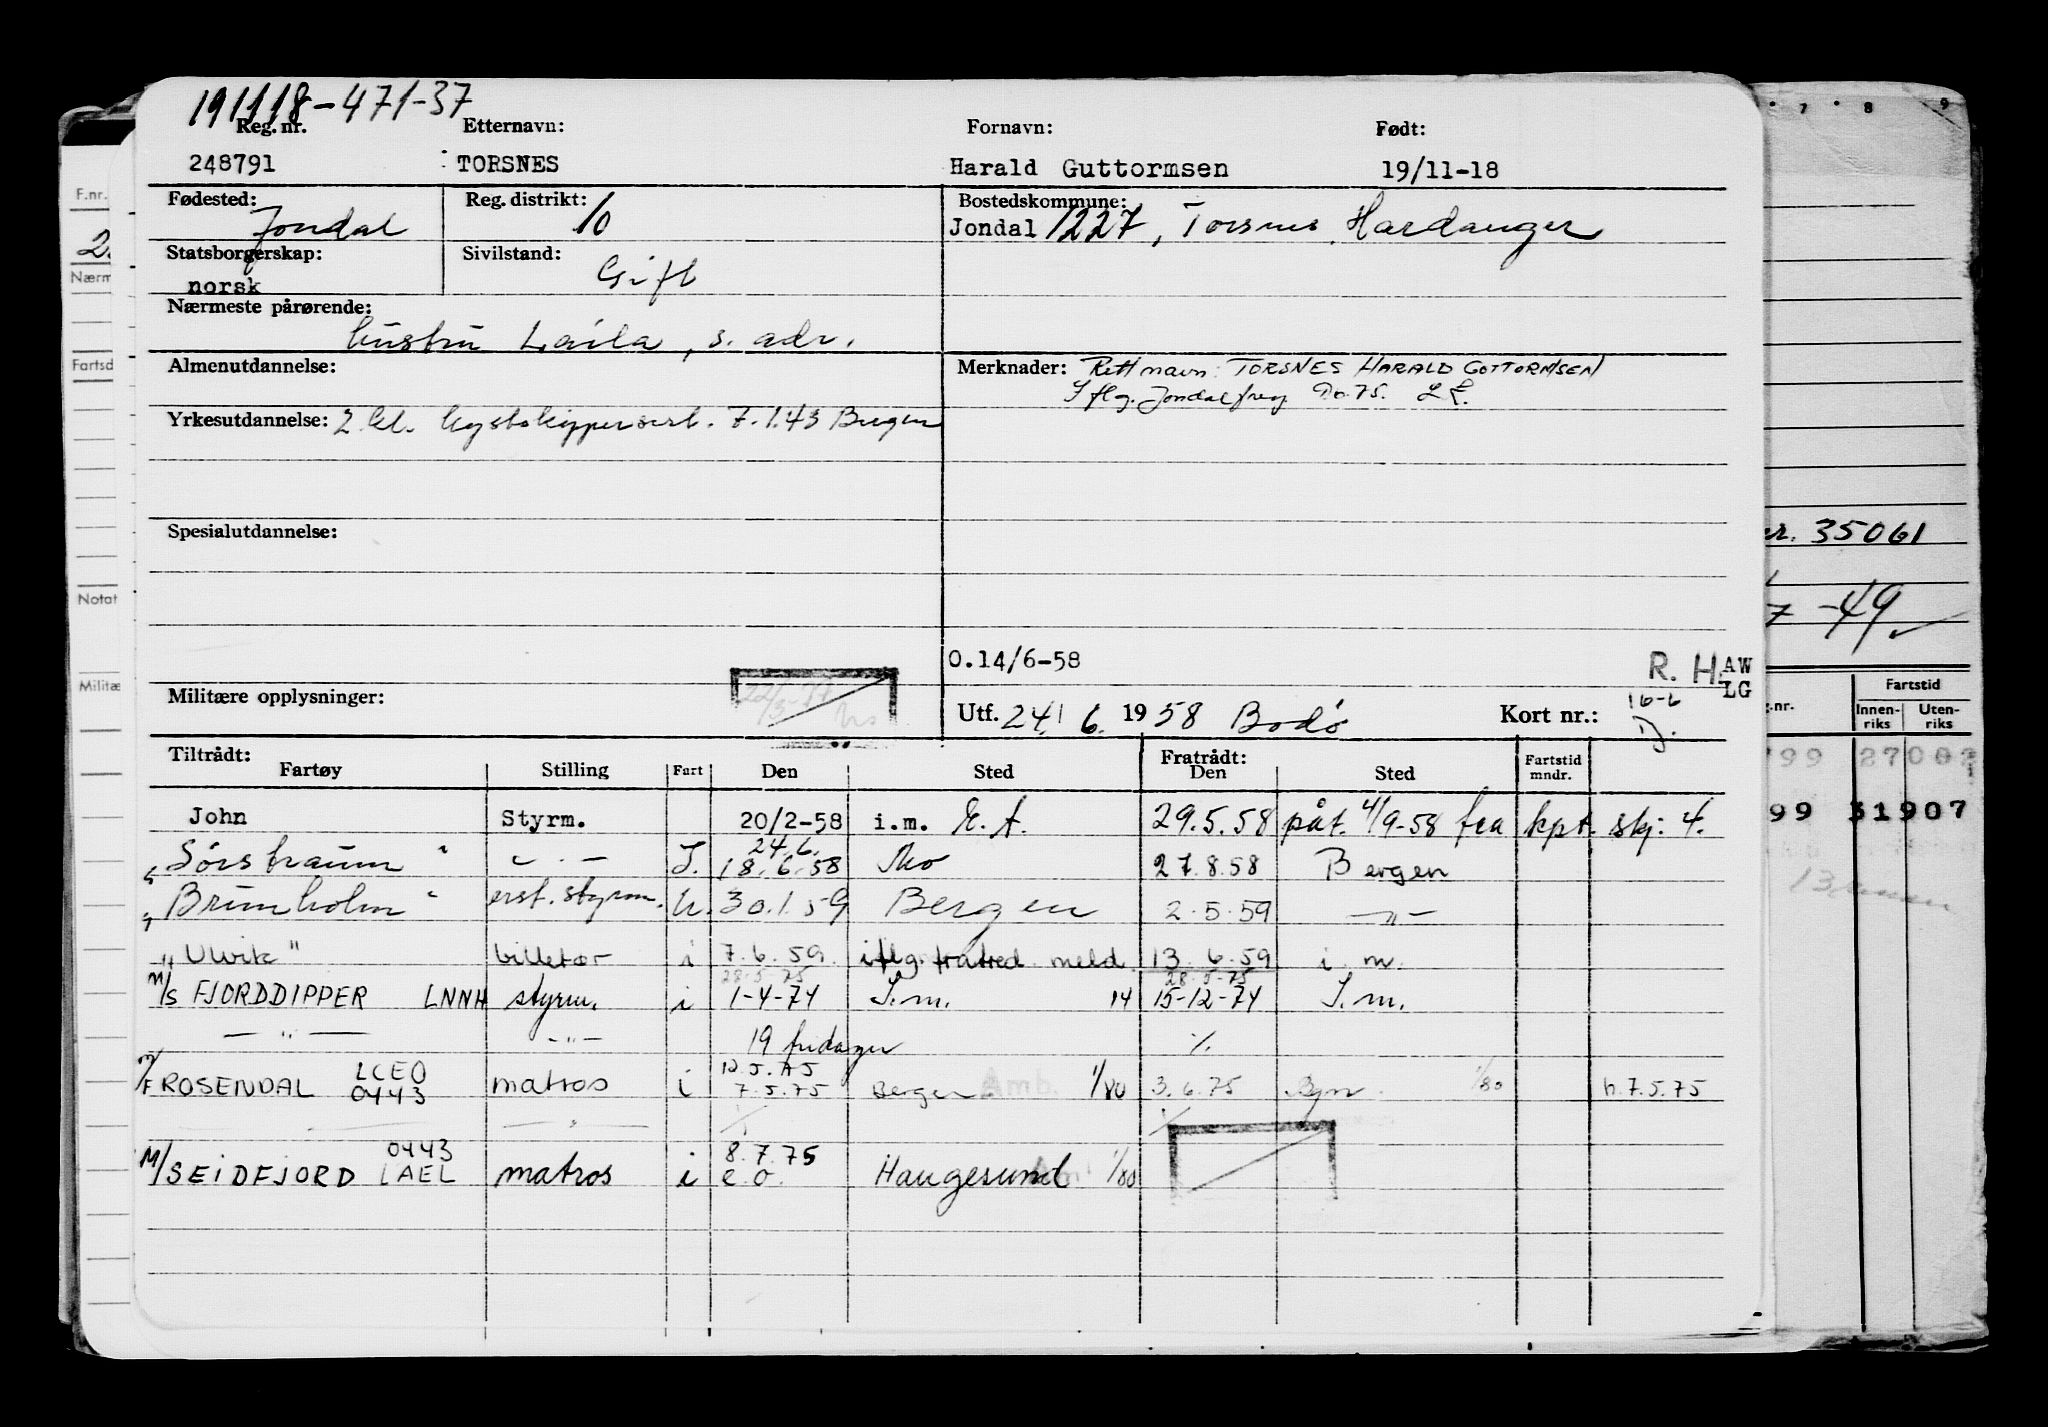 191118-471-37
Reg. nr. Etternavn: Fornavn: Født:
248791 TORSNES Harald Guttormsen 19/11-18
Fødested: Jondal Reg. distrikt: 10 Bostedskommune:
Jondal 1227, Torsnes, Hardanger
Statsborgerskap: norsk Sivilstand: Gift
Nærmeste pårørende:
hustru Laila, s. adr.
Almenutdannelse: Merknader: Rett navn: TORSNES HARALD GOTTORMSEN
I flg. Jondal freg
Yrkesutdannelse: 2. kl. kystskippersert. 7.1.43 Bergen
Spesialutdannelse:
O.14/6-58 R. H. AW
LG
Militære opplysninger: Utf. 24/6. 1958 Bodø Kort nr.: 16-6
Tiltrådt: Fratrådt:
Fartøy Stilling Fart Den Sted Den Sted Fartstid mndr.
John Styrm. 20/2-58 i.m. E.A. 29.5.58 påt. 4/9-58 fra kpt. skj. 4.
24.6.
"Sørstraum" - " - I. 18.6.58 Mo 27.8.58 Bergen
"Brimholm" erst. styrm. U. 30.1.59 Bergen 2.5.59 - " -
"Ulvik" billetør i 7.6.59 iflg. fratred. meld. 13.6.59 i.m.
28.5.75 28.5.75
M/S FJORDDIPPER LNNH styrm. i 1-4-74 I.m. 14 15-12-74 I.m.
- " - - " - 19 fridager %
M/F ROSENDAL LCEO 0443 matros i 12.5.75 7.5.75 Bergen Amb. 1/80 3.6.75 Bgn 1/80 h.7.5.75
- " -
M/S SEIDFJORD 0443 LAEL matros i 8.7.75 e.o. Haugesund 1/80
F.nr.
2.
Nærm
Fartsd
Notat
Militæ
7 8 9
nr. 35061
7 -49
Fartstid
g.nr. Innenriks Utenriks
99 27002
99 31907